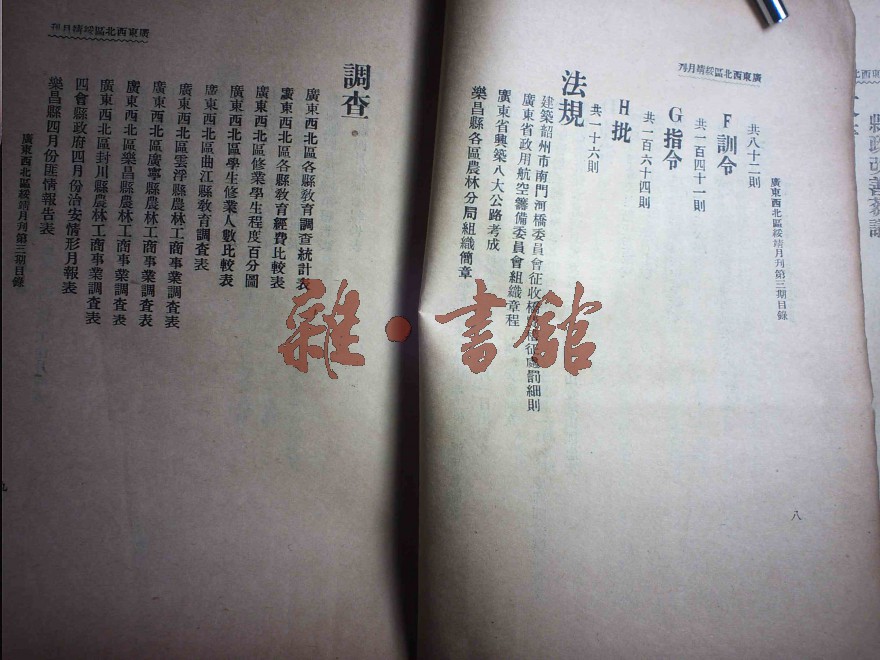 廣東西北區綏靖月刊
廣東西北區綏靖月刊第三期目錄
共八十二則
F訓令
共一百四十一則
G指令
共一百六十四則
H批
共一十六則
法規
建築韶州市南門河橋委員會征收橋
征處罰細則
廣東省政用航空籌備委員會組織章程
廣東省興築八大公路考成
樂昌縣各區農林分局組織簡章
八
廣東西北區綏靖月刊
調查
廣東西北區各縣敎育調查統計表
廣東西北區各縣敎育經費比較表
廣東西北區修業學生程度百分圖
廣東西北區學生修業人數比較表
廣東西北區曲江縣敎育調查表
廣東西北區雲浮縣農林工商事業調查表
廣東西北區廣寧縣農林工商事業調查表
廣東西北區樂昌縣農林工商事業調查表
廣東西北區封川縣農林工商事業調查表
四會縣政府四月份治安情形月報表
樂昌縣四月份匪情報告表
廣東西北區綏靖月刊第三期目錄
九
雜·書館